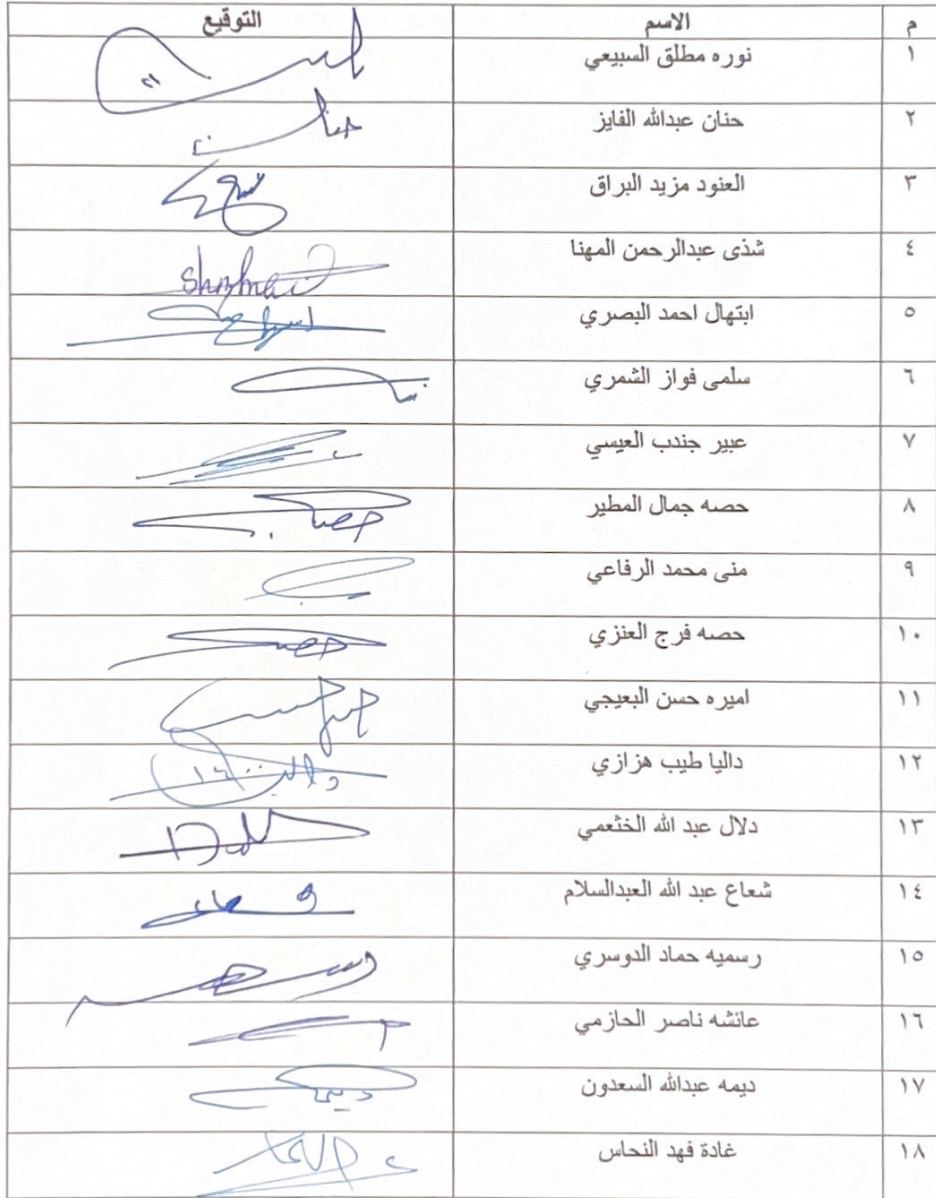 م الاسم التوقيع
١ نوره مطلق السبيعي
٢ حنان عبدالله الفايز حنان
٣ العنود مزيد البراق
٤ شذى عبدالرحمن المهنا
٥ ابتهال احمد البصري
٦ سلمى فواز الشمري
٧ عبير جندب العيسي
٨ حصه جمال المطير حصه
٩ منى محمد الرفاعي
١٠ حصه فرج العنزي حصه
١١ اميره حسن البعيجي
١٢ داليا طيب هزازي داليا
١٣ دلال عبد الله الخثعمي
١٤ شعاع عبد الله العبدالسلام
١٥ رسميه حماد الدوسري
١٦ عائشه ناصر الحازمي
١٧ ديمه عبدالله السعدون ديمه
١٨ غادة فهد النحاس